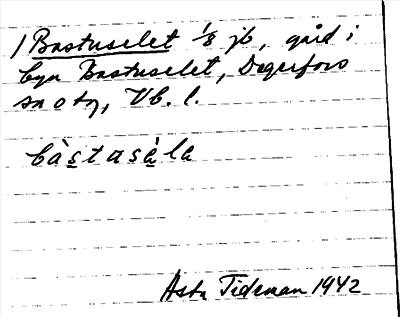 1 Bastuselet 1/8 jb, gård i
byn Bastuselet, Degerfors
sn o tg, Vb. l.
bàstasàla
Asta Tideman 1942